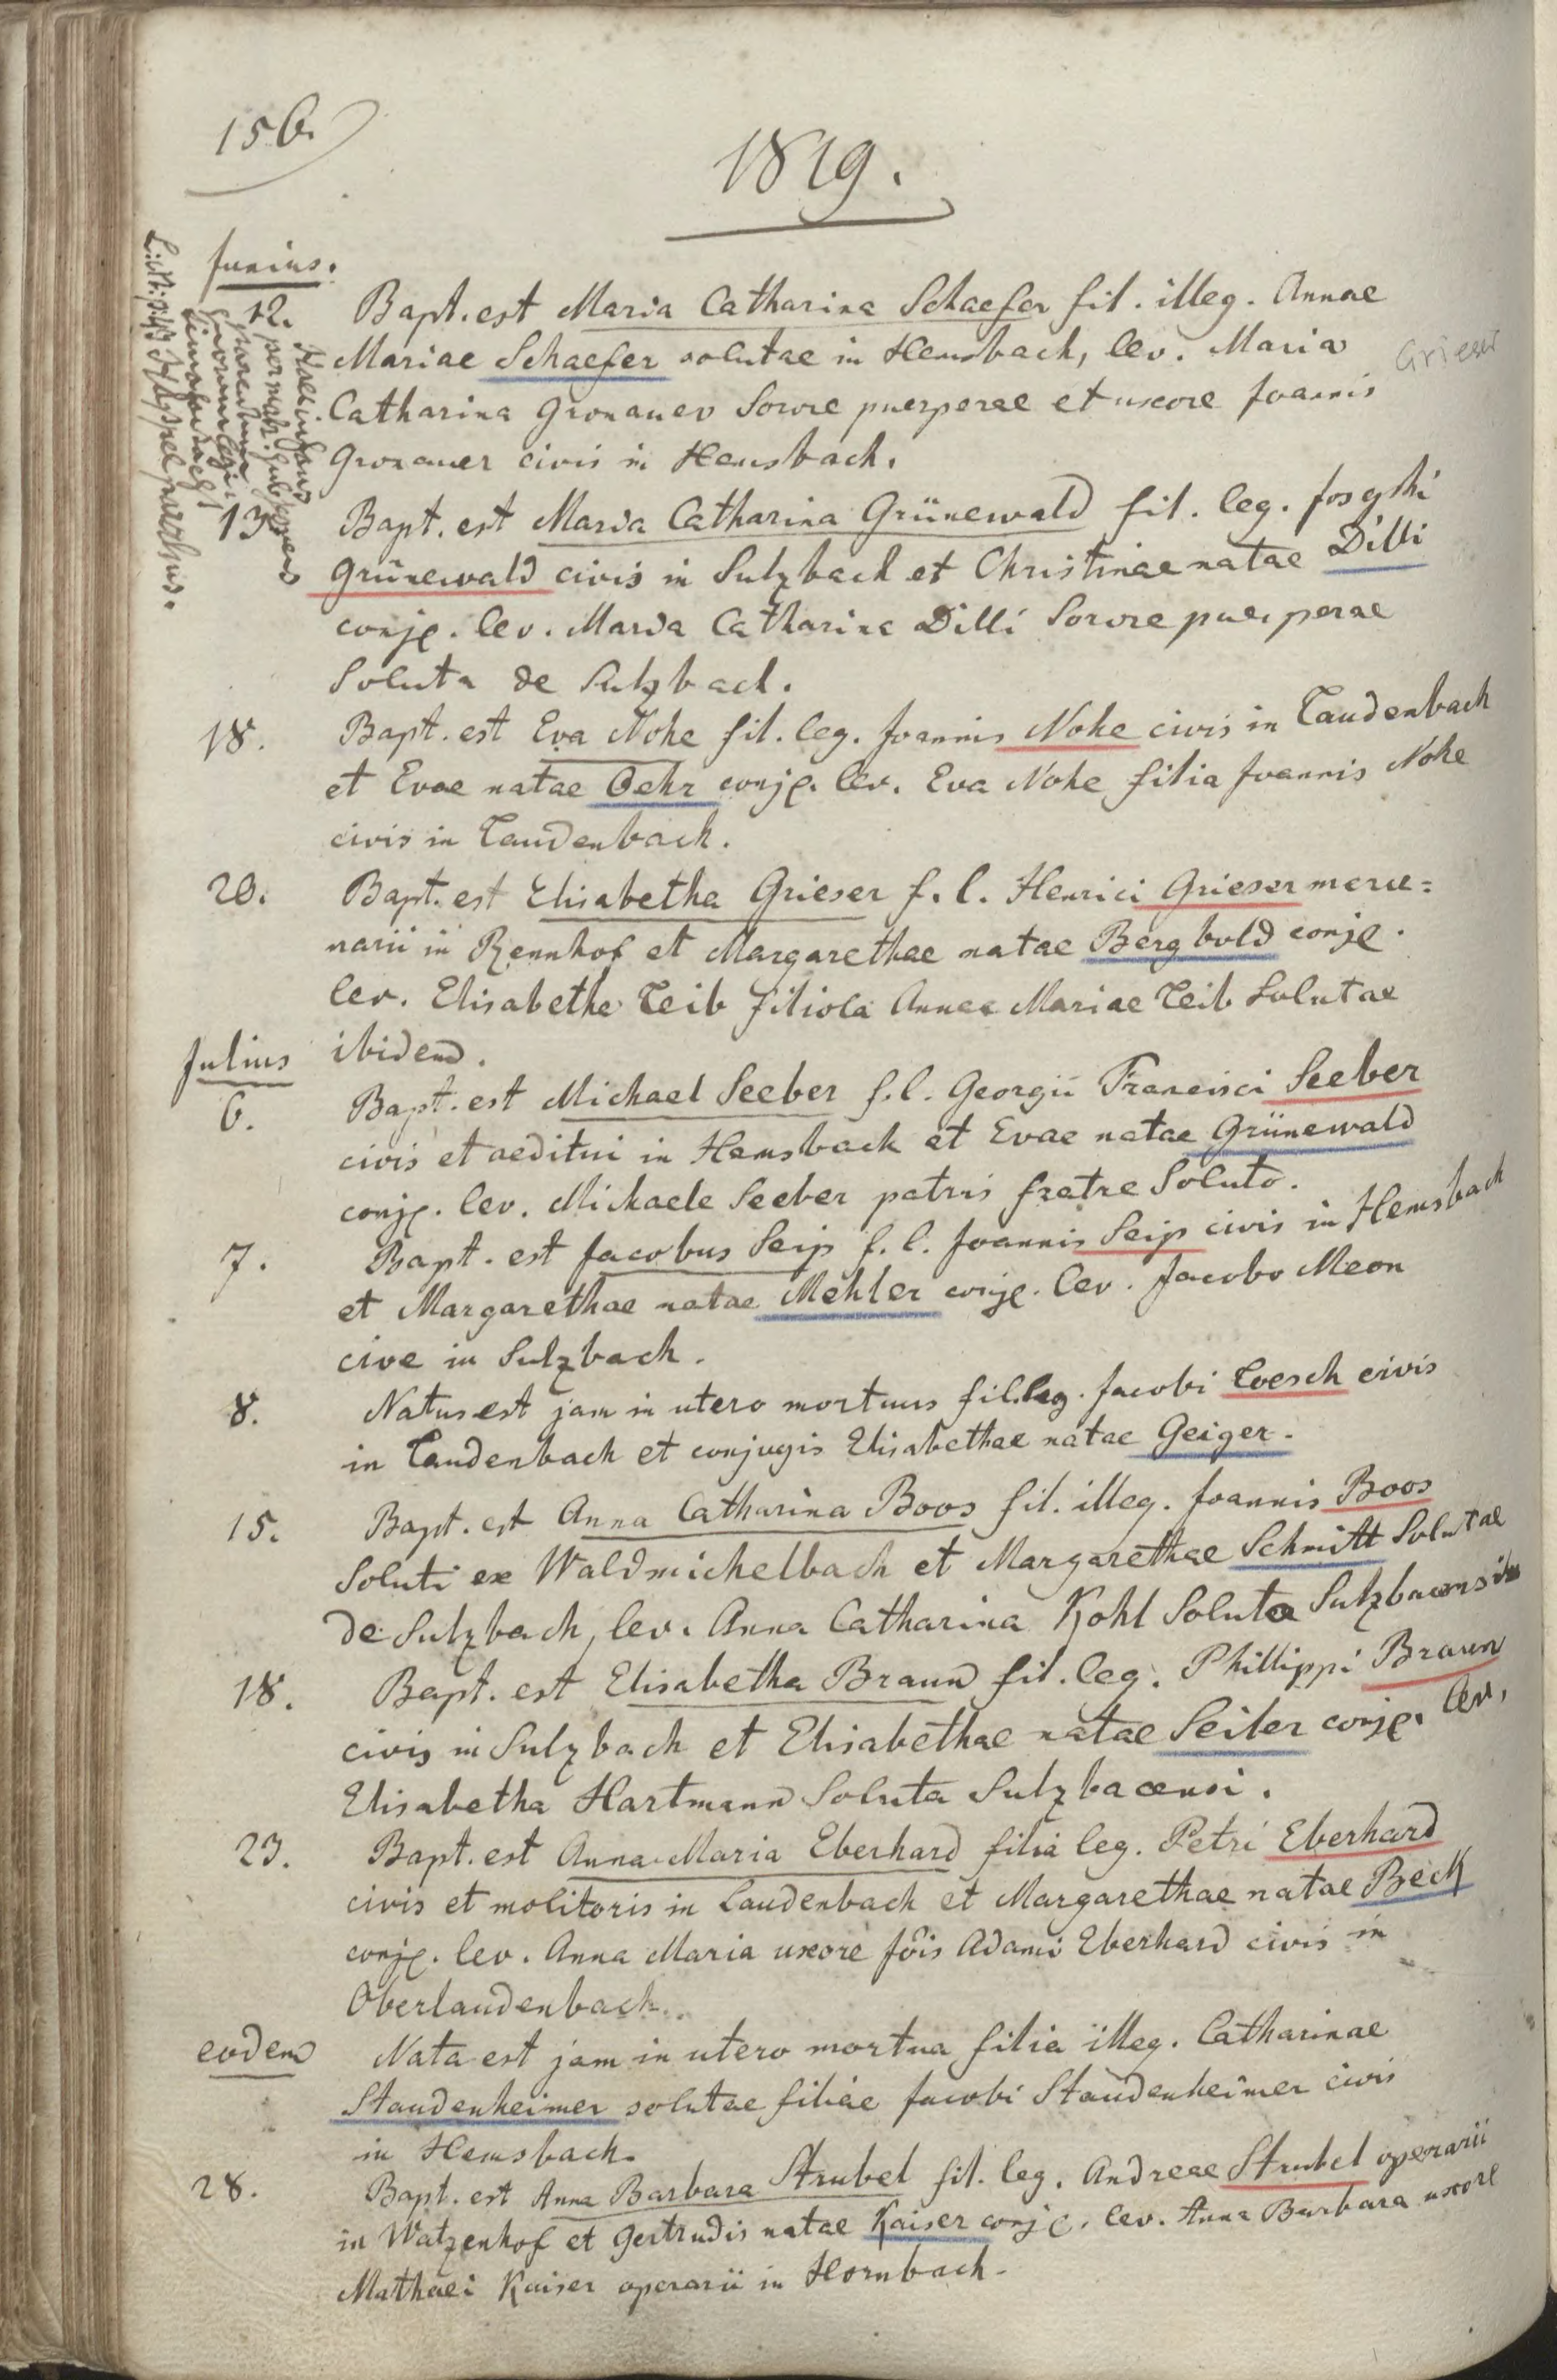 156.
1819.
Junius.
12. Bapt. est Maria Catharina Schaefer fil. illeg. Annae
Mariae Schaefer solutae in Hemsbach, lev. Maria
Grieser
Catharina Gronauer Sorore puerperae et uxore Joannis
Gronauer civis in Hemsbach.
Haec infans
per matr. subsequens
parentum
suorum legi:
timata est
parochus.
13. Bapt. est Maria Catharina Grünewald fil. leg. Josephi
Grünewald civis in Sulzbach et Christinae natae Dilli
conjg. lev. Maria Catharina Dilli Sorore puerperae
Soluta de Sulzbach.
18. Bapt. est Eva Nohe fil. leg. Joannis Nohe civis in Laudenbach
et Evae natae Oehr conjg. lev. Eva Nohe filia Joannis Nohe
civis in Laudenbach.
20. Bapt. est Elisabetha Grieser f. l. Henrici Grieser merce=
narii in Rennhof et Margarethae natae Bergbold conjg.
lev. Elisabetha Leib filiola Annae Mariae Leib Solutae
ibidem.
Julius
6. Bapt. est Michael Seeber f. l. Georgii Francisci Seeber
civis et aeditui in Hemsbach et Evae natae Grünewald
conjg. lev. Michaele Seeber patris fratre Soluto.
7. Bapt. est Jacobus Seip f. l. Joannis Seip civis in Hemsbach
et Margarethae natae Mehler conjg. lev. Jacobo Meon
cive in Sulzbach.
8. Natus est jam in utero mortuus fil. leg. Jacobi Loesch civis
in Laudenbach et conjugis Elisabethae natae Geiger.
15. Bapt. est Anna Catharina Boos fil. illeg. Joannis Boos
Soluti ex Waldmichelbach et Margarethae Schmitt Solutae
de Sulzbach, lev. Anna Catharina Kohl Soluta Sulzbacensi
18. Bapt. est Elisabetha Braun fil. leg. Phillippi Braun
civis in Sulzbach et Elisabethae natae Seiler conjg. lev.
Elisabetha Hartmann Soluta Sulzbacensi.
23. Bapt. est Anna Maria Eberhard filia leg. Petri Eberhard
civis et molitoris in Laudenbach et Margarethae natae Beck
conjg. lev. Anna Maria uxore Jõis Adami Eberhard civis in
Oberlaudenbach.
eodem Nata est jam in utero mortua filia illeg. Catharinae
Staudenheimer solutae filiae Jacobi Staudenheimer civis
in Hemsbach.
28. Bapt. est Anna Barbara Strubel fil. leg. Andreae Strubel operarii
in Watzenhof et Gertrudis natae Kaiser conjg. lev. Anna Barbara uxore
Mathaei Kaiser operarii in Hornbach.